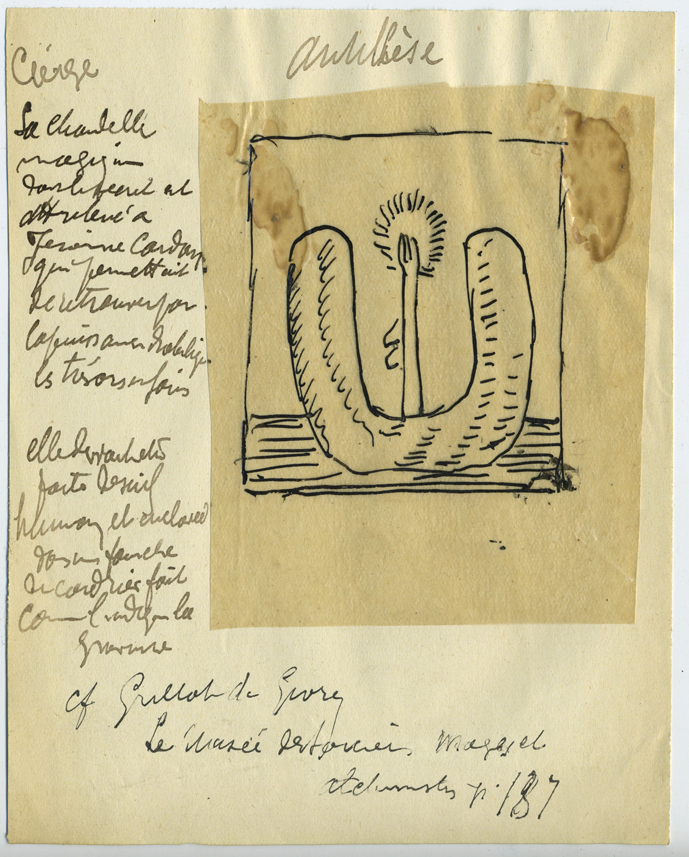 Cierge
antithèse
La chandelle
magique
dont le secret est
dit relevé à
Jerome Cardan
qui permettait
de retrouver par
la puissance diabolique
les trésors enfouis
elle devrait être
faite de suif
humain et enclavée
dans une fourche
de coudrier fait
comme l'indique la
gravure
cf Grillot de Givry
Le Musée des sorciers, mages et
alchimistes p. 187